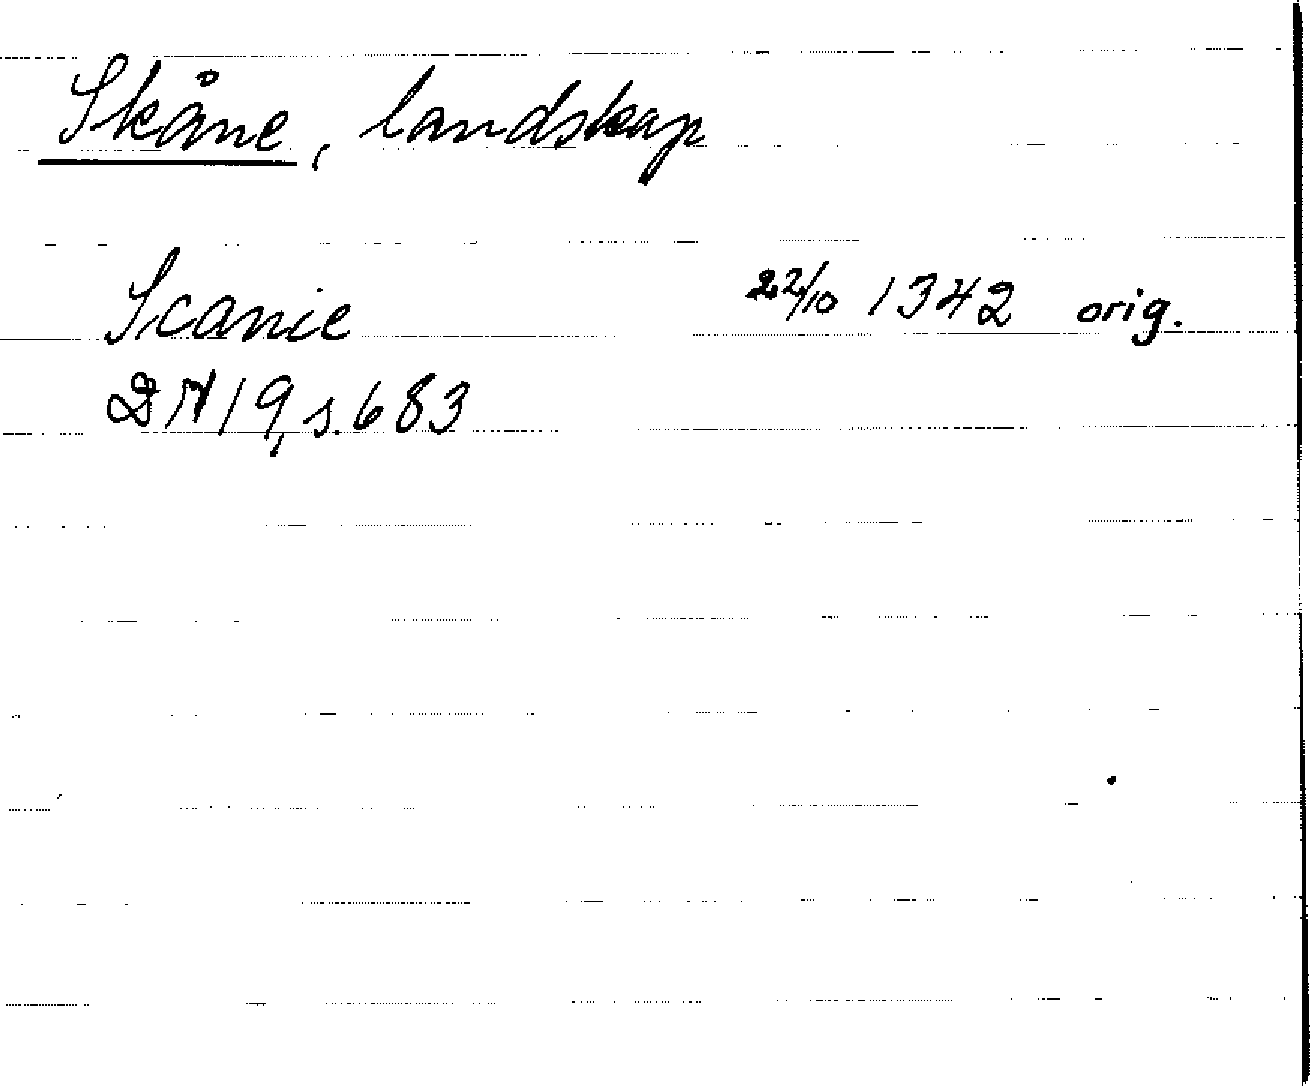 Skåne, landskap
Scanie 22/10 1342 orig.
DN 19, s. 683